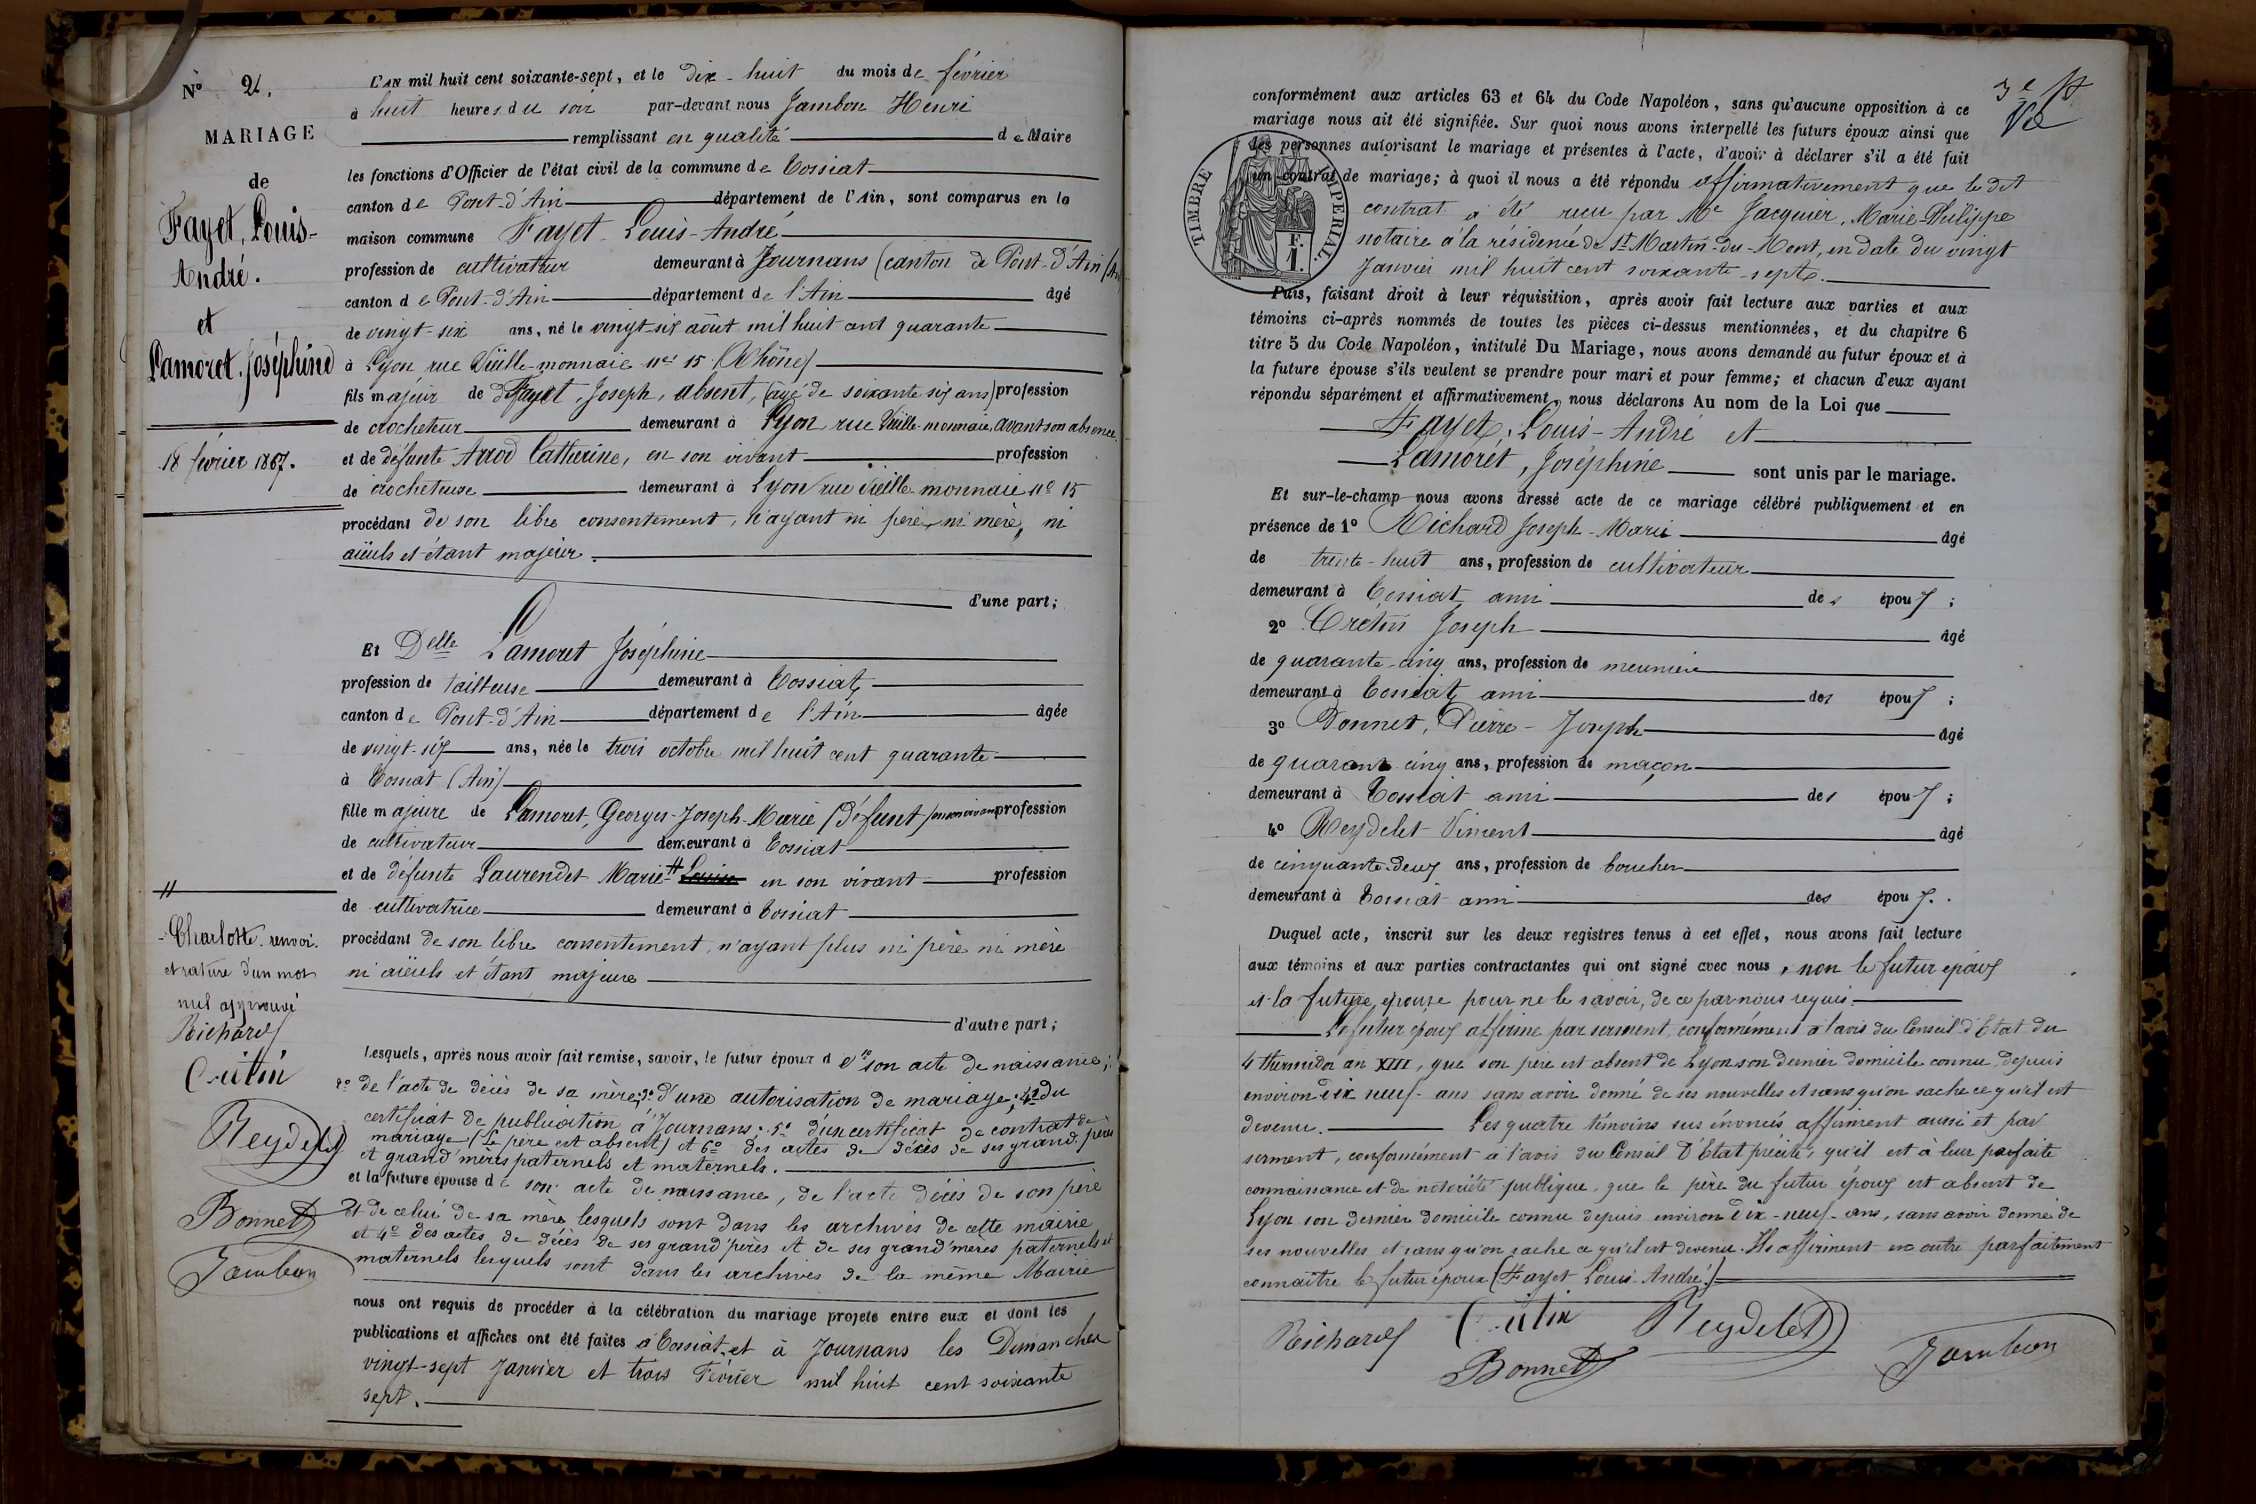 N° 2.
MARIAGE
de
Fayet, Louis-
André.
et
Lamoret, Joséphine
18 février 1867.
L'AN mil huit cent soixante-sept, et le dix-huit du mois de février
à huit heures du soir par-devant nous Jambon Henri
remplissant en qualité de Maire
les fonctions d'Officier de l'état civil de la commune de Tossiat
canton de Pont-d'Ain département de l'Ain, sont comparus en la
maison commune Fayet Louis-André
profession de cultivateur demeurant à Journans (canton de Pont-d'Ain
canton de Pont-d'Ain département de l'Ain âgé
de vingt-six ans, né le vingt-six août mil huit cent quarante
à Lyon rue Vieille-monnaie n° 15 (Rhône)
fils majeur de Fayet, Joseph, absent, (âgé de soixante six ans) profession
de crocheteur demeurant à Lyon rue Vieille-monnaie, avant son absence
et de défunte Catherine, en son vivant profession
de crocheteuse demeurant à Lyon rue Vieille monnaie n° 15
procédant de son libre consentement, n'ayant ni père, ni mère, ni
aïeuls et étant majeur.
d'une part;
Et Delle Lamoret Joséphine
profession de tailleuse demeurant à Tossiat,
canton de Pont-d'Ain département de l'Ain âgée
de vingt-six ans, née le trois octobre mil huit cent quarante
à Tossiat (Ain)
fille majeure de Lamoret, Georges-Joseph-Marie (défunt) en son vivant profession
de cultivateur demeurant à Tossiat
et de défunte Laurendet Marie # Louise en son vivant profession
de cultivatrice demeurant à Tossiat
procédant de son libre consentement, n'ayant plus ni père ni mère
ni aïeuls et étant majeure
d'autre part;
#
Charlotte. renvoi.
et rature d'un mot
nul approuvé
Richard
Crétin
Reydelet
Bonnet
Jambon
Lesquels, après nous avoir fait remise, savoir, le futur époux de 1° son acte de naissance;
2° de l'acte de décès de sa mère; 3° d'une autorisation de mariage; 4° du
certificat de publication à Journans; 5° d'un certificat de contrat de
mariage (Le père est absent) et 6° des actes de décès de ses grand'pères
et grand'mères paternels et maternels.
et la future épouse de son acte de naissance, de l'acte décès de son père
et de celui de sa mère lesquels sont dans les archives de cette mairie
et 4° des actes de décès de ses grand'pères et de ses grand'mères paternels et
maternels lesquels sont dans les archives de la même Mairie
nous ont requis de procéder à la célébration du mariage projeté entre eux et dont les
publications et affiches ont été faites à Tossiat, et à Journans les Dimanches
vingt-sept Janvier et trois Février mil huit cent soixante
sept.
3e
conformément aux articles 63 et 64 du Code Napoléon, sans qu'aucune opposition à ce
mariage nous ait été signifiée. Sur quoi nous avons interpellé les futurs époux ainsi que
les personnes autorisant le mariage et présentes à l'acte, d'avoir à déclarer s'il a été fait
un contrat de mariage; à quoi il nous a été répondu affirmativement que le dit
contrat a été reçu par Me Jacquier, Marie-Philippe
notaire à la résidence de St Martin-du-Mont, en date du vingt
Janvier mil huit cent soixante-sept.
TIMBRE IMPERIAL
F.
1.
Puis, faisant droit à leur réquisition, après avoir fait lecture aux parties et aux
témoins ci-après nommés de toutes les pièces ci-dessus mentionnées, et du chapitre 6
titre 5 du Code Napoléon, intitulé Du Mariage, nous avons demandé au futur époux et à
la future épouse s'ils veulent se prendre pour mari et pour femme; et chacun d'eux ayant
répondu séparément et affirmativement, nous déclarons Au nom de la Loi que
Fayet, Louis-André et
Lamoret, Joséphine sont unis par le mariage.
Et sur-le-champ nous avons dressé acte de ce mariage célébré publiquement et en
présence de 1° Richard Joseph-Marie âgé
de trente-huit ans, profession de cultivateur
demeurant à Tossiat ami des époux;
2° Crétin Joseph âgé
de quarante-cinq ans, profession de meunier
demeurant à Tossiat, ami des époux;
3° Bonnet, Pierre-Joseph âgé
de quarante cinq ans, profession de maçon
demeurant à Tossiat ami des époux;
4° Reydelet Vincent âgé
de cinquante-deux ans, profession de boucher
demeurant à Tossiat ami des époux.
Duquel acte, inscrit sur les deux registres tenus à cet effet, nous avons fait lecture
aux témoins et aux parties contractantes qui ont signé avec nous, non le futur époux
et la future épouse pour ne le savoir, de ce par nous requis.
Le futur époux affirme par serment, conformément à l'avis du Conseil d'Etat du
4 thermidor an XIII, que son père est absent de Lyon son dernier domicile connu, depuis
environ dix neuf ans sans avoir donné de ses nouvelles et sans qu'on sache ce qu'il est
devenu. Les quatre témoins sus énoncés affirment aussi et par
serment, conformément à l'avis du Conseil d'Etat précité, qu'il est à leur parfaite
connaissance et de notoriété publique, que le père du futur époux est absent de
Lyon son dernier domicile connu depuis environ dix-neuf ans, sans avoir donné de
ses nouvelles et sans qu'on sache ce qu'il est devenu. Ils affirment en outre parfaitement
connaître le futur époux (Fayet Louis André.)
Richard Crétin Reydelet
Bonnet Jambon